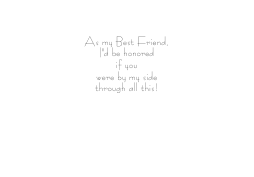 As my Best Friend,
I'd be honored
if you
were by my side
through all this!